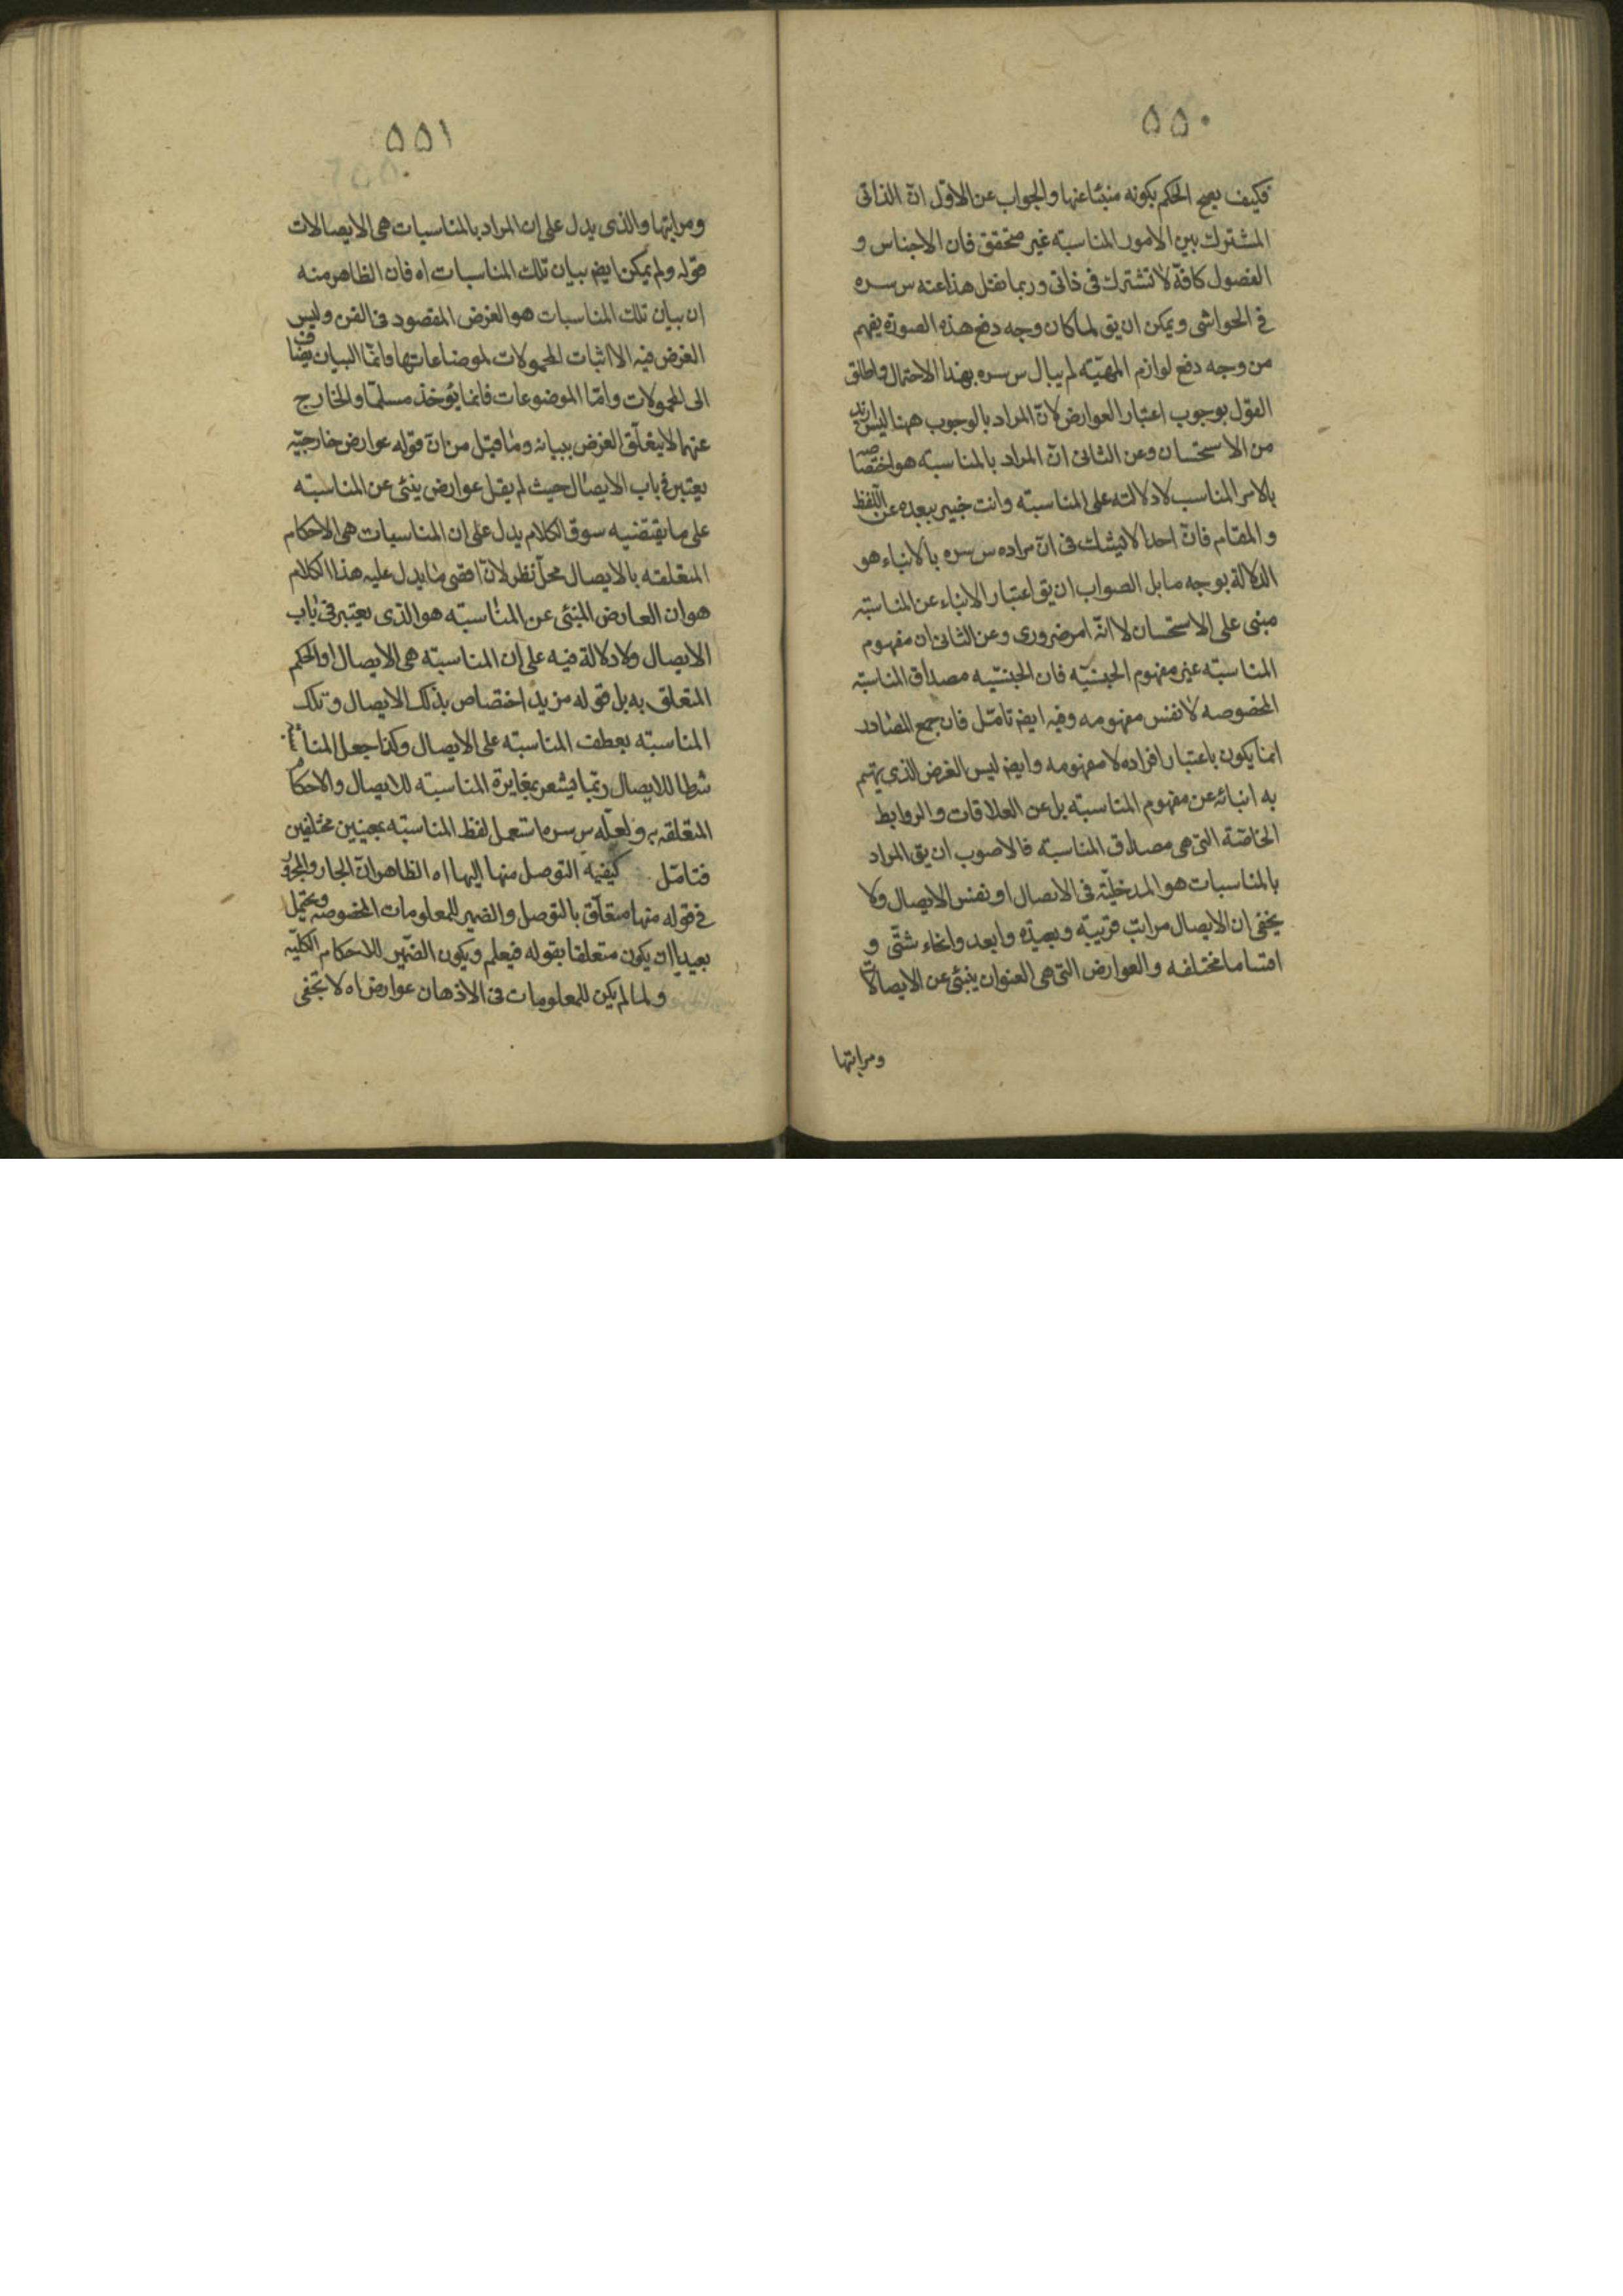 ۵۵۰
فكيف يصح الحكم بكونه منبئا عنها والجواب عن الاول ان الذاتى
المشترك بين الامور المناسبة غير متحقق فان الاجناس و
الفصول كافة لا تشترك فى ذاتى وربما نقل هذا عنه س سره
فى الحواشى ويمكن ان يق لما كان وجه دفع هذه الصورة يفهم
من وجه دفع لوازم المهيّة لم يبال س سره بهذا الاحتمال واطلق
القول بوجوب اعتبار العوارض لانّ المراد بالوجوب ههنا ليس ازيد
من الاستحسان وعن الثانى انّ المراد بالمناسبة هو اختصاصه
بالامر المناسب لا دلالته على المناسبة وانت خبير ببعده عن اللفظ
والمقام فانّ احدا لا يشك فى انّ مراده س سره بالانباء هو
الدلالة بوجه ما بل الصواب ان يق اعتبار الانباء عن المناسبة
مبنى على الاستحسان لا انّه امر ضرورى وعن الثانى ان مفهوم
المناسبة غير مفهوم الجنسيّة فان الجنسيّة مصداق المناسبة
المخصوصه لا نفس مفهومه وفيه ايض تامّل فان جمع المصادر
انما يكون باعتبار افراده لا مفهومه وايض ليس الغرض الذى يهتم
به انبائه عن مفهوم المناسبة بل عن العلاقات والروابط
الخاصّة التى هى مصداق المناسبة فالاصوب ان يق المراد
بالمناسبات هو المدخليّة فى الايصال او نفس الايصال ولا
يخفى ان الايصال مراتب قريبة وبعيدة وابعد وانحاء شتّى و
اقساما مختلفه والعوارض التى هى العنوان ينبئ عن الايصالات
ومراتبها
۵۵۱
ومراتبها والذى يدل على ان المراد بالمناسبات هى الايصالات
قوله ولم يمكن ايض بيان تلك المناسبات اه فان الظاهر منه
ان بيان تلك المناسبات هو الغرض المقصود فى الفن وليس
الغرض فيه الا اثبات المحمولات لموضاعاتها وانمّا البيان يضاف
الى المحمولات وامّا الموضوعات فانما يؤخذ مسلّما والخارج
عنهما لا يتعلّق الغرض ببيانه وما قيل من انّ قوله عوارض خارجيّه
يعتبر فى باب الايصال حيث لم يقل عوارض ينبئ عن المناسبة
على ما يقتضيه سوق الكلام يدل على ان المناسبات هى الاحكام
المتعلقه بالايصال محلّ نظر لانّ اقصى ما يدل عليه هذا الكلام
هو ان العارض المنبئ عن المناسبة هو الذى يعتبر فى باب
الايصال ولا دلالة فيه على ان المناسبة هى الايصال او الحكم
المتعلق به بل قوله مزيد اختصاص بذلك الايصال وتلك
المناسبة بعطف المناسبة على الايصال وكذا جعل المناسبة
شطا للايصال ربّما يشعر بمغايرة المناسبة للايصال والاحكام
المتعلقه به ولعلّه س سره استعمل لفظ المناسبة بمعنيين مختلفين
فتامّل كيفية التوصل منها اليها اه الظاهر انّ الجار والمجرور
فى قوله منها متعلّق بالتوصل والضمير للمعلومات المخصوصه ويحتمل
بعيدا ان يكون متعلقا بقوله فيعلم ويكون الضّمير للاحكام الكليّه
ولما لم يكن للمعلومات فى الاذهان عوارض اه لا يخفى